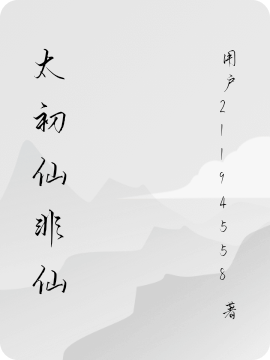 太初仙非仙
用户21194558 著